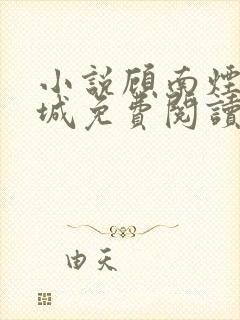 小說顧南煙
城免費閱讀
由天